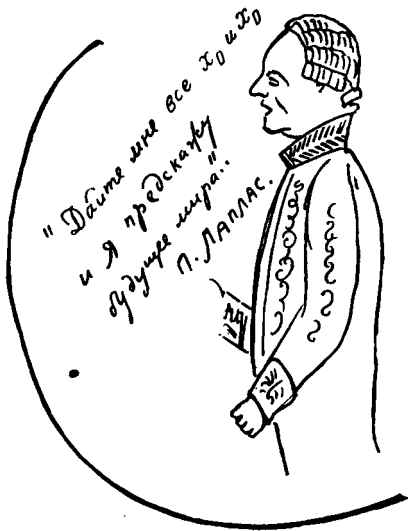 "Дайте мне все x₀ и x₀
и я предскажу
будущее мира".
П. Лаплас.